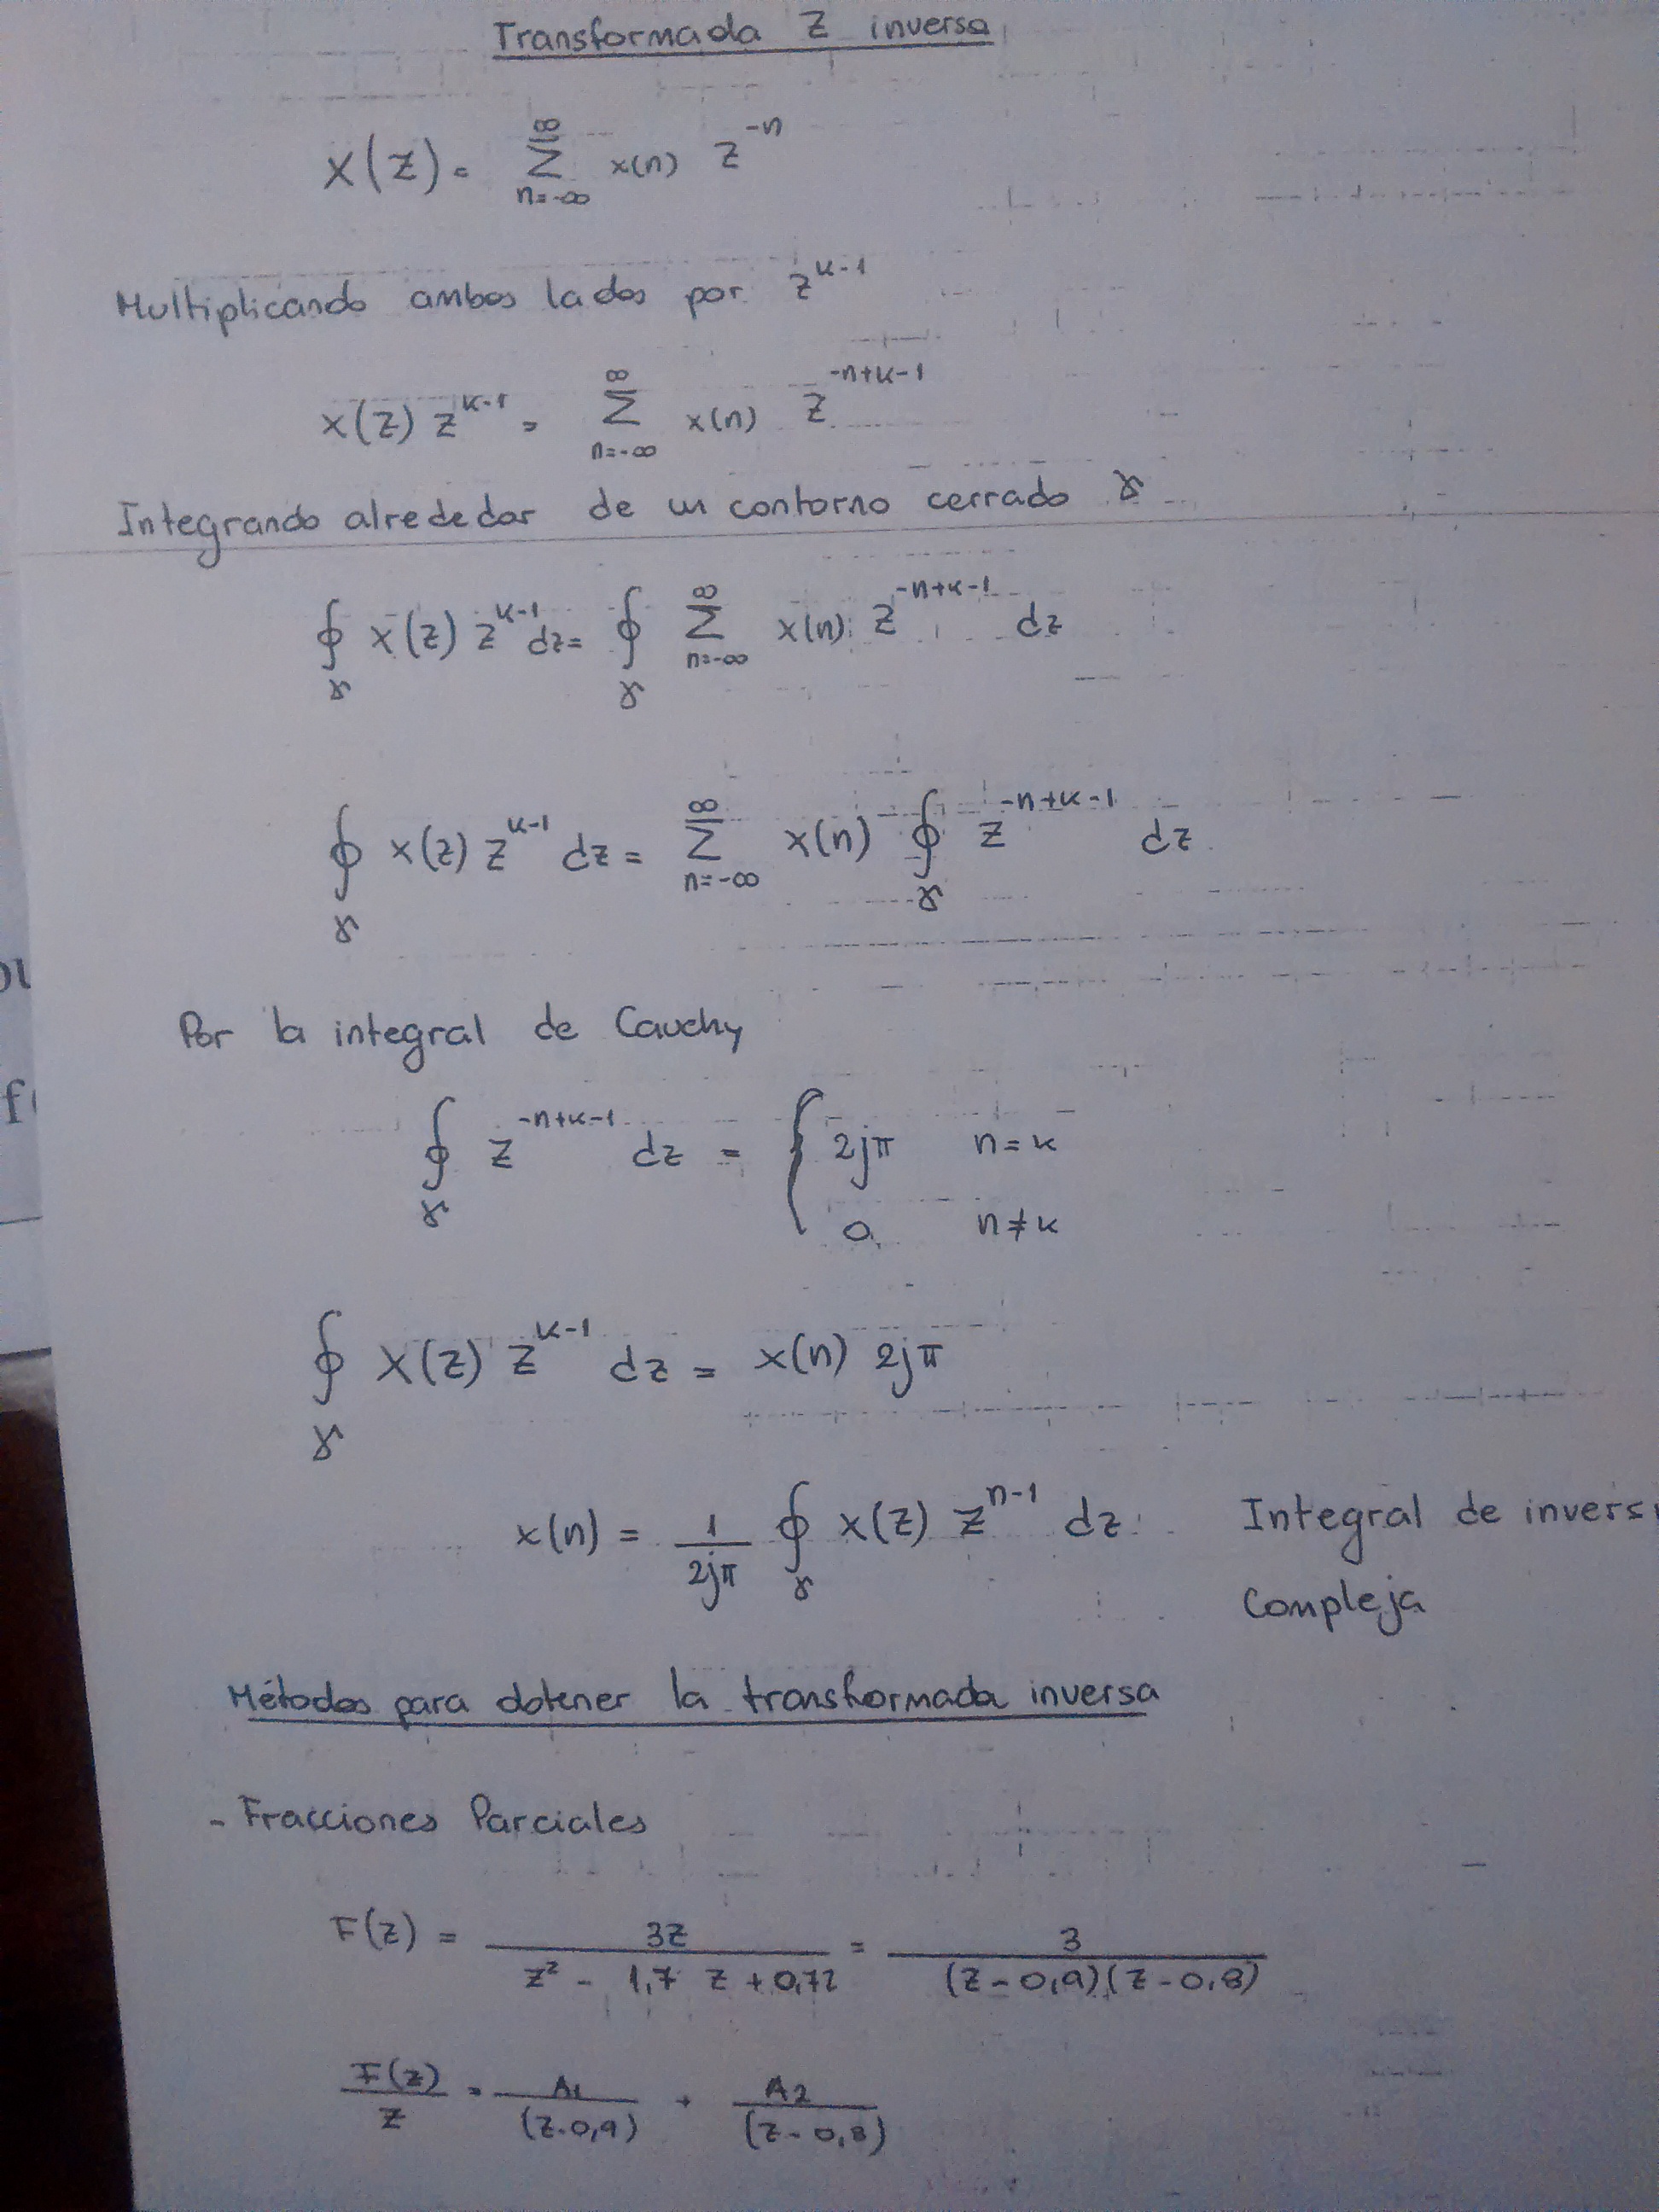 Transformada Z inversa
X(z) = ∑_{n=-∞}^{∞} x(n) z^{-n}
Multiplicando ambos lados por z^{k-1}
X(z) z^{k-1} = ∑_{n=-∞}^{∞} x(n) z^{-n+k-1}
Integrando alrededor de un contorno cerrado γ
∮_γ X(z) z^{k-1} dz = ∮_γ ∑_{n=-∞}^{∞} x(n) z^{-n+k-1} dz
∮_γ X(z) z^{k-1} dz = ∑_{n=-∞}^{∞} x(n) ∮_γ z^{-n+k-1} dz
Por la integral de Cauchy
∮_γ z^{-n+k-1} dz = { 2jπ n = k
0 n ≠ k
∮_γ X(z) z^{k-1} dz = x(n) 2jπ
x(n) = 1/(2jπ) ∮_γ X(z) z^{n-1} dz Integral de inversi
Compleja
Métodos para obtener la transformada inversa
- Fracciones Parciales
F(z) = 3z / (z² - 1,7 z + 0,72) = 3 / ((z - 0,9)(z - 0,8))
F(z)/z = A1/(z-0,9) + A2/(z-0,8)